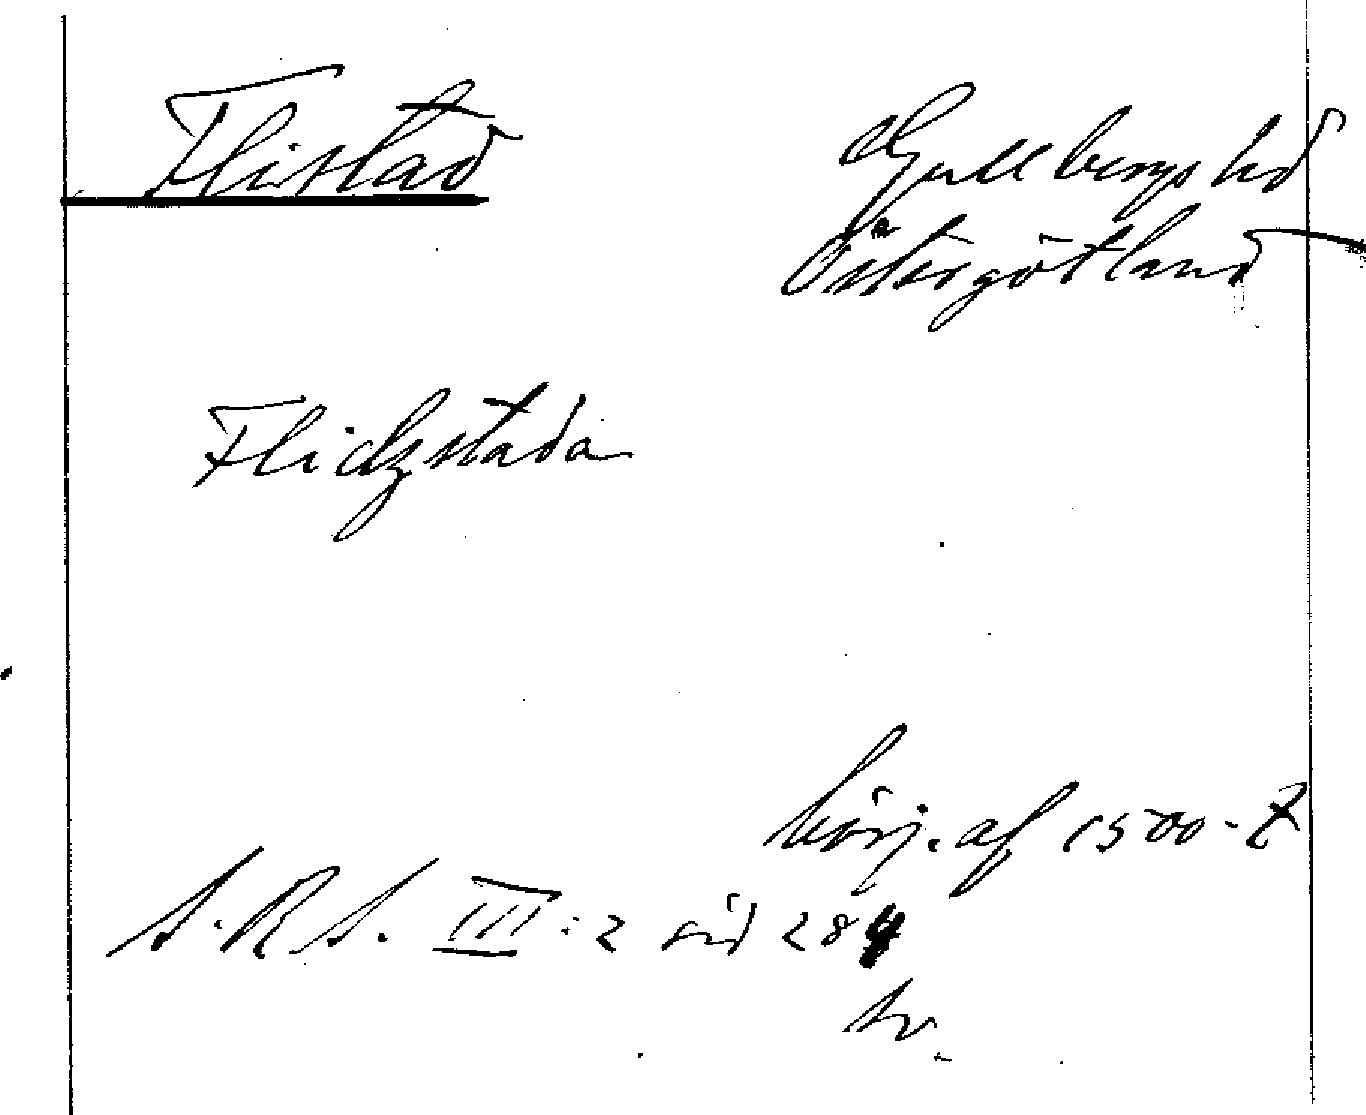 Flistad
Gullbergs hd
Östergötland
Flidzstada
börj. af 1500-t
S.R.S. III:2 sid 284
sv.